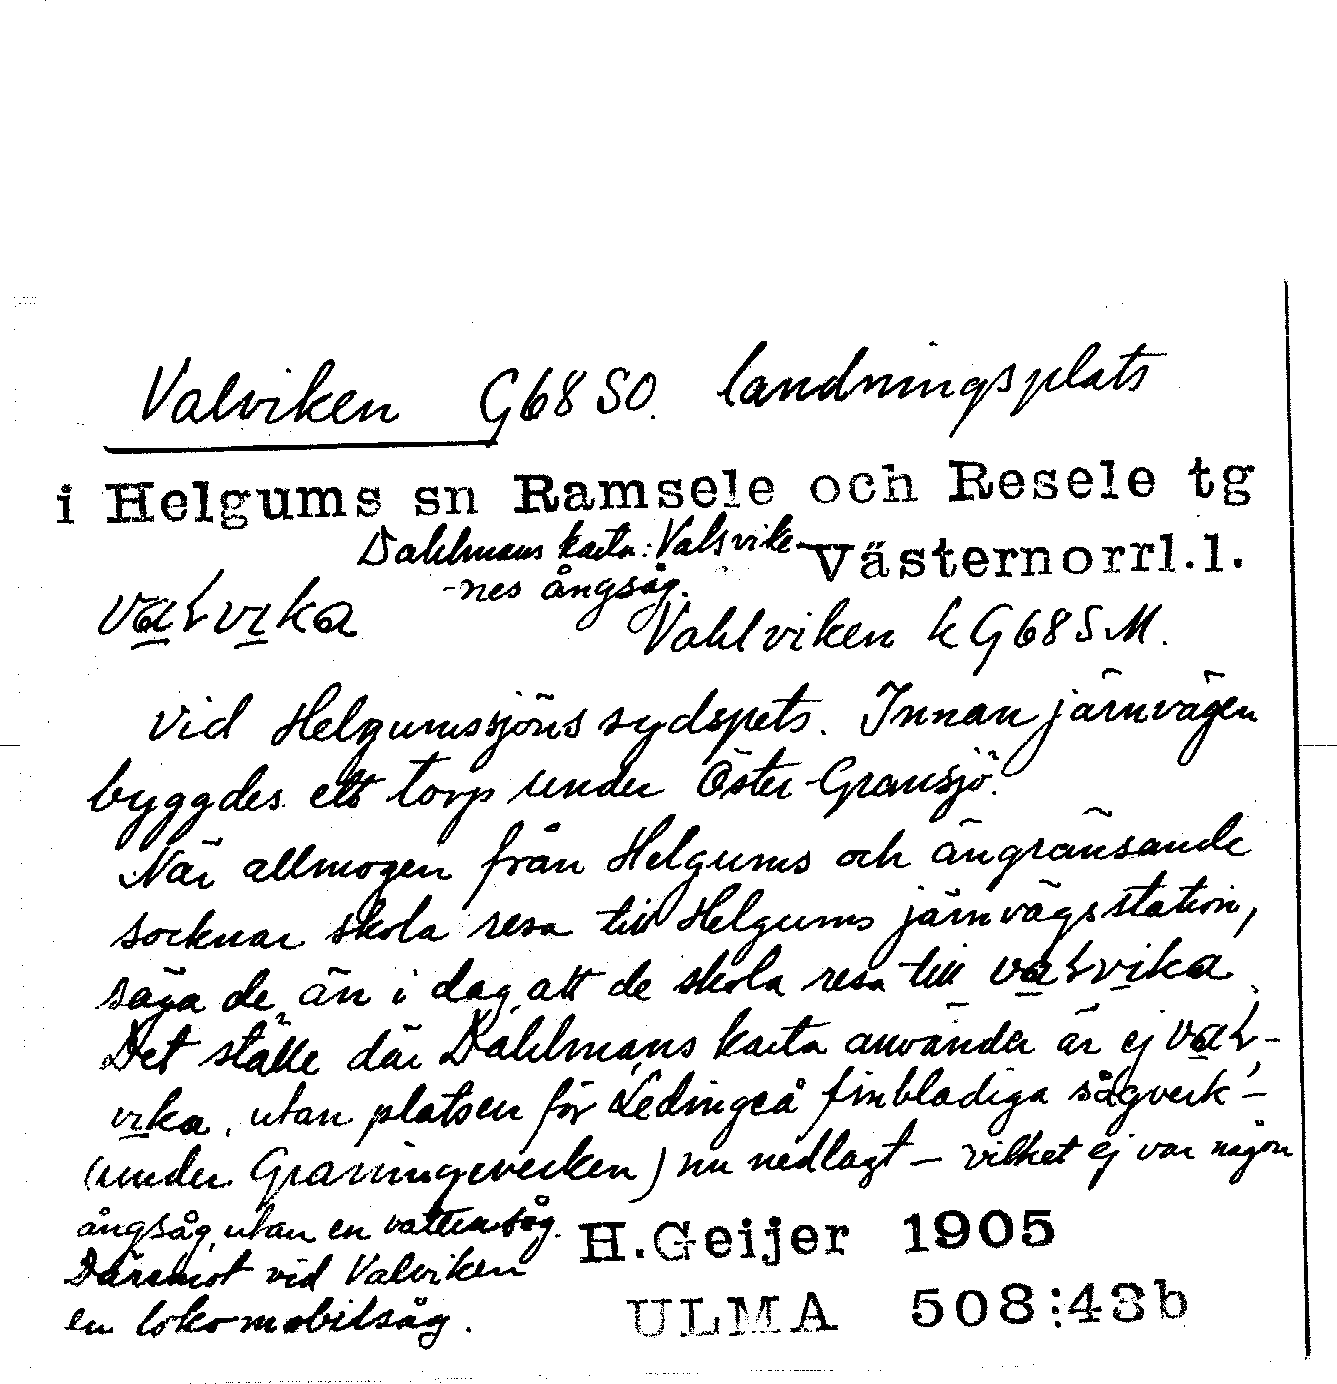 Valviken G68SO. landningsplats
i Helgums sn Ramsele och Resele tg
Dahlmans karta: Valsvike-
Västernorrl.l.
-nes ångsåg.
vaɫvika
Vahlviken k G68SM.
Vid Helgumssjöns sydspets. Innan järnvägen
byggdes ett torp under Öster-Gransjö.
När allmogen från Helgums och angränsande
socknar skola resa till Helgums järnvägsstation,
säga de än i dag, att de skola resa till vaɫvika.
Det ställe där Dahlmans karta använder är ej vaɫ-
vika, utan platsen för Ledingeå finbladiga sågverk -
(under Graningeverken) nu nedlagt - vilket ej var någon
ångsåg, utan en vattensåg.
Däremot vid Valviken
en lokomobilsåg.
H.Geijer 1905
ULMA 508:43b